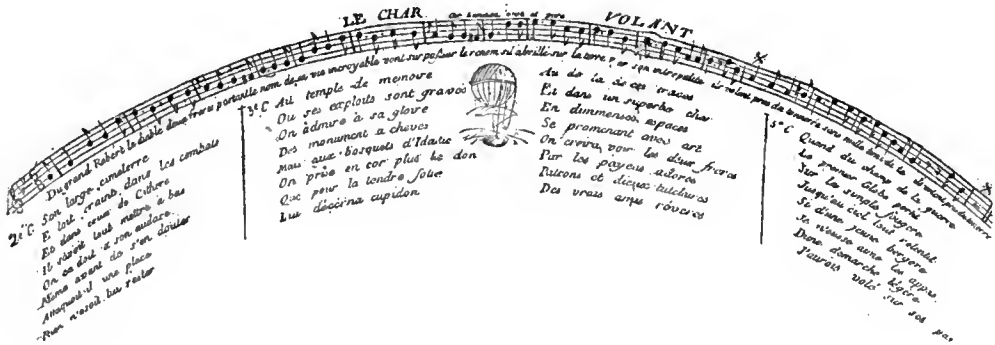 LE CHAR VOLANT
Du grand Robert le diable deux freres portant le nom de sa vie incroyable vont surpassant le renom s'il a brillé sur la terre par son intrepidité ils volent pres du tonnerre sans
2e. C. Son large cimeterre
E tout craint dans les combats
Et dans ceux de Cithere
Il savoit tout mettre a bas
On ce doit a son audace
Meme avant de s'en douter
Attaquoit il une place
Rien n'osoit lui rester
3e C Au temple de memoire
Ou ses exploits sont gravés
On admire a sa gloire
Des monument a cheves
Mais aux bosquets d'Idalie
On prise en cor plus le don
Que pour la tendre folie
Lui decerna cupidon
Au de la de ces traces
Et dans un superbe char
En d'immenses espaces
Se promenant avec art
On croira voir les deux freres
Par les payens adores
Patrons et dieux tutelaires
Des vrais amis réveres
5e C Quand du champ de la guerre
Le premier Globe partit
Sur la simple fougere
Jusqu'au ciel tout retentit
Si d'une jeune bergere
Je n'eusse aimé les appas
D'une demarche légere
J'aurois volé sur ses pas